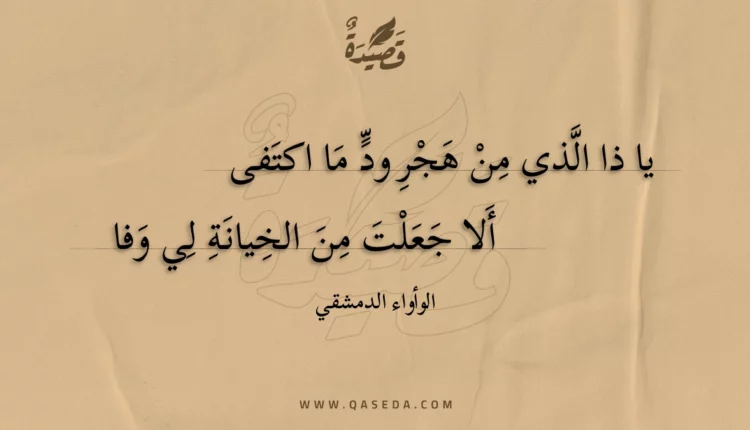 قَصِيْدَةٌ
يا ذا الَّذي مِنْ هَجْرِ ودٍّ مَا اكتَفى
أَلا جَعَلْتَ مِنَ الخِيانَةِ لِي وَفا
الوأواء الدمشقي
WWW.QASEDA.COM